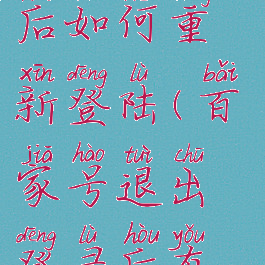 后如何重
xīn dēng lù bǎi
新登陆(百
jiā hào tuì chū
家号退出
dēng lù hòu yǒu
登录后有